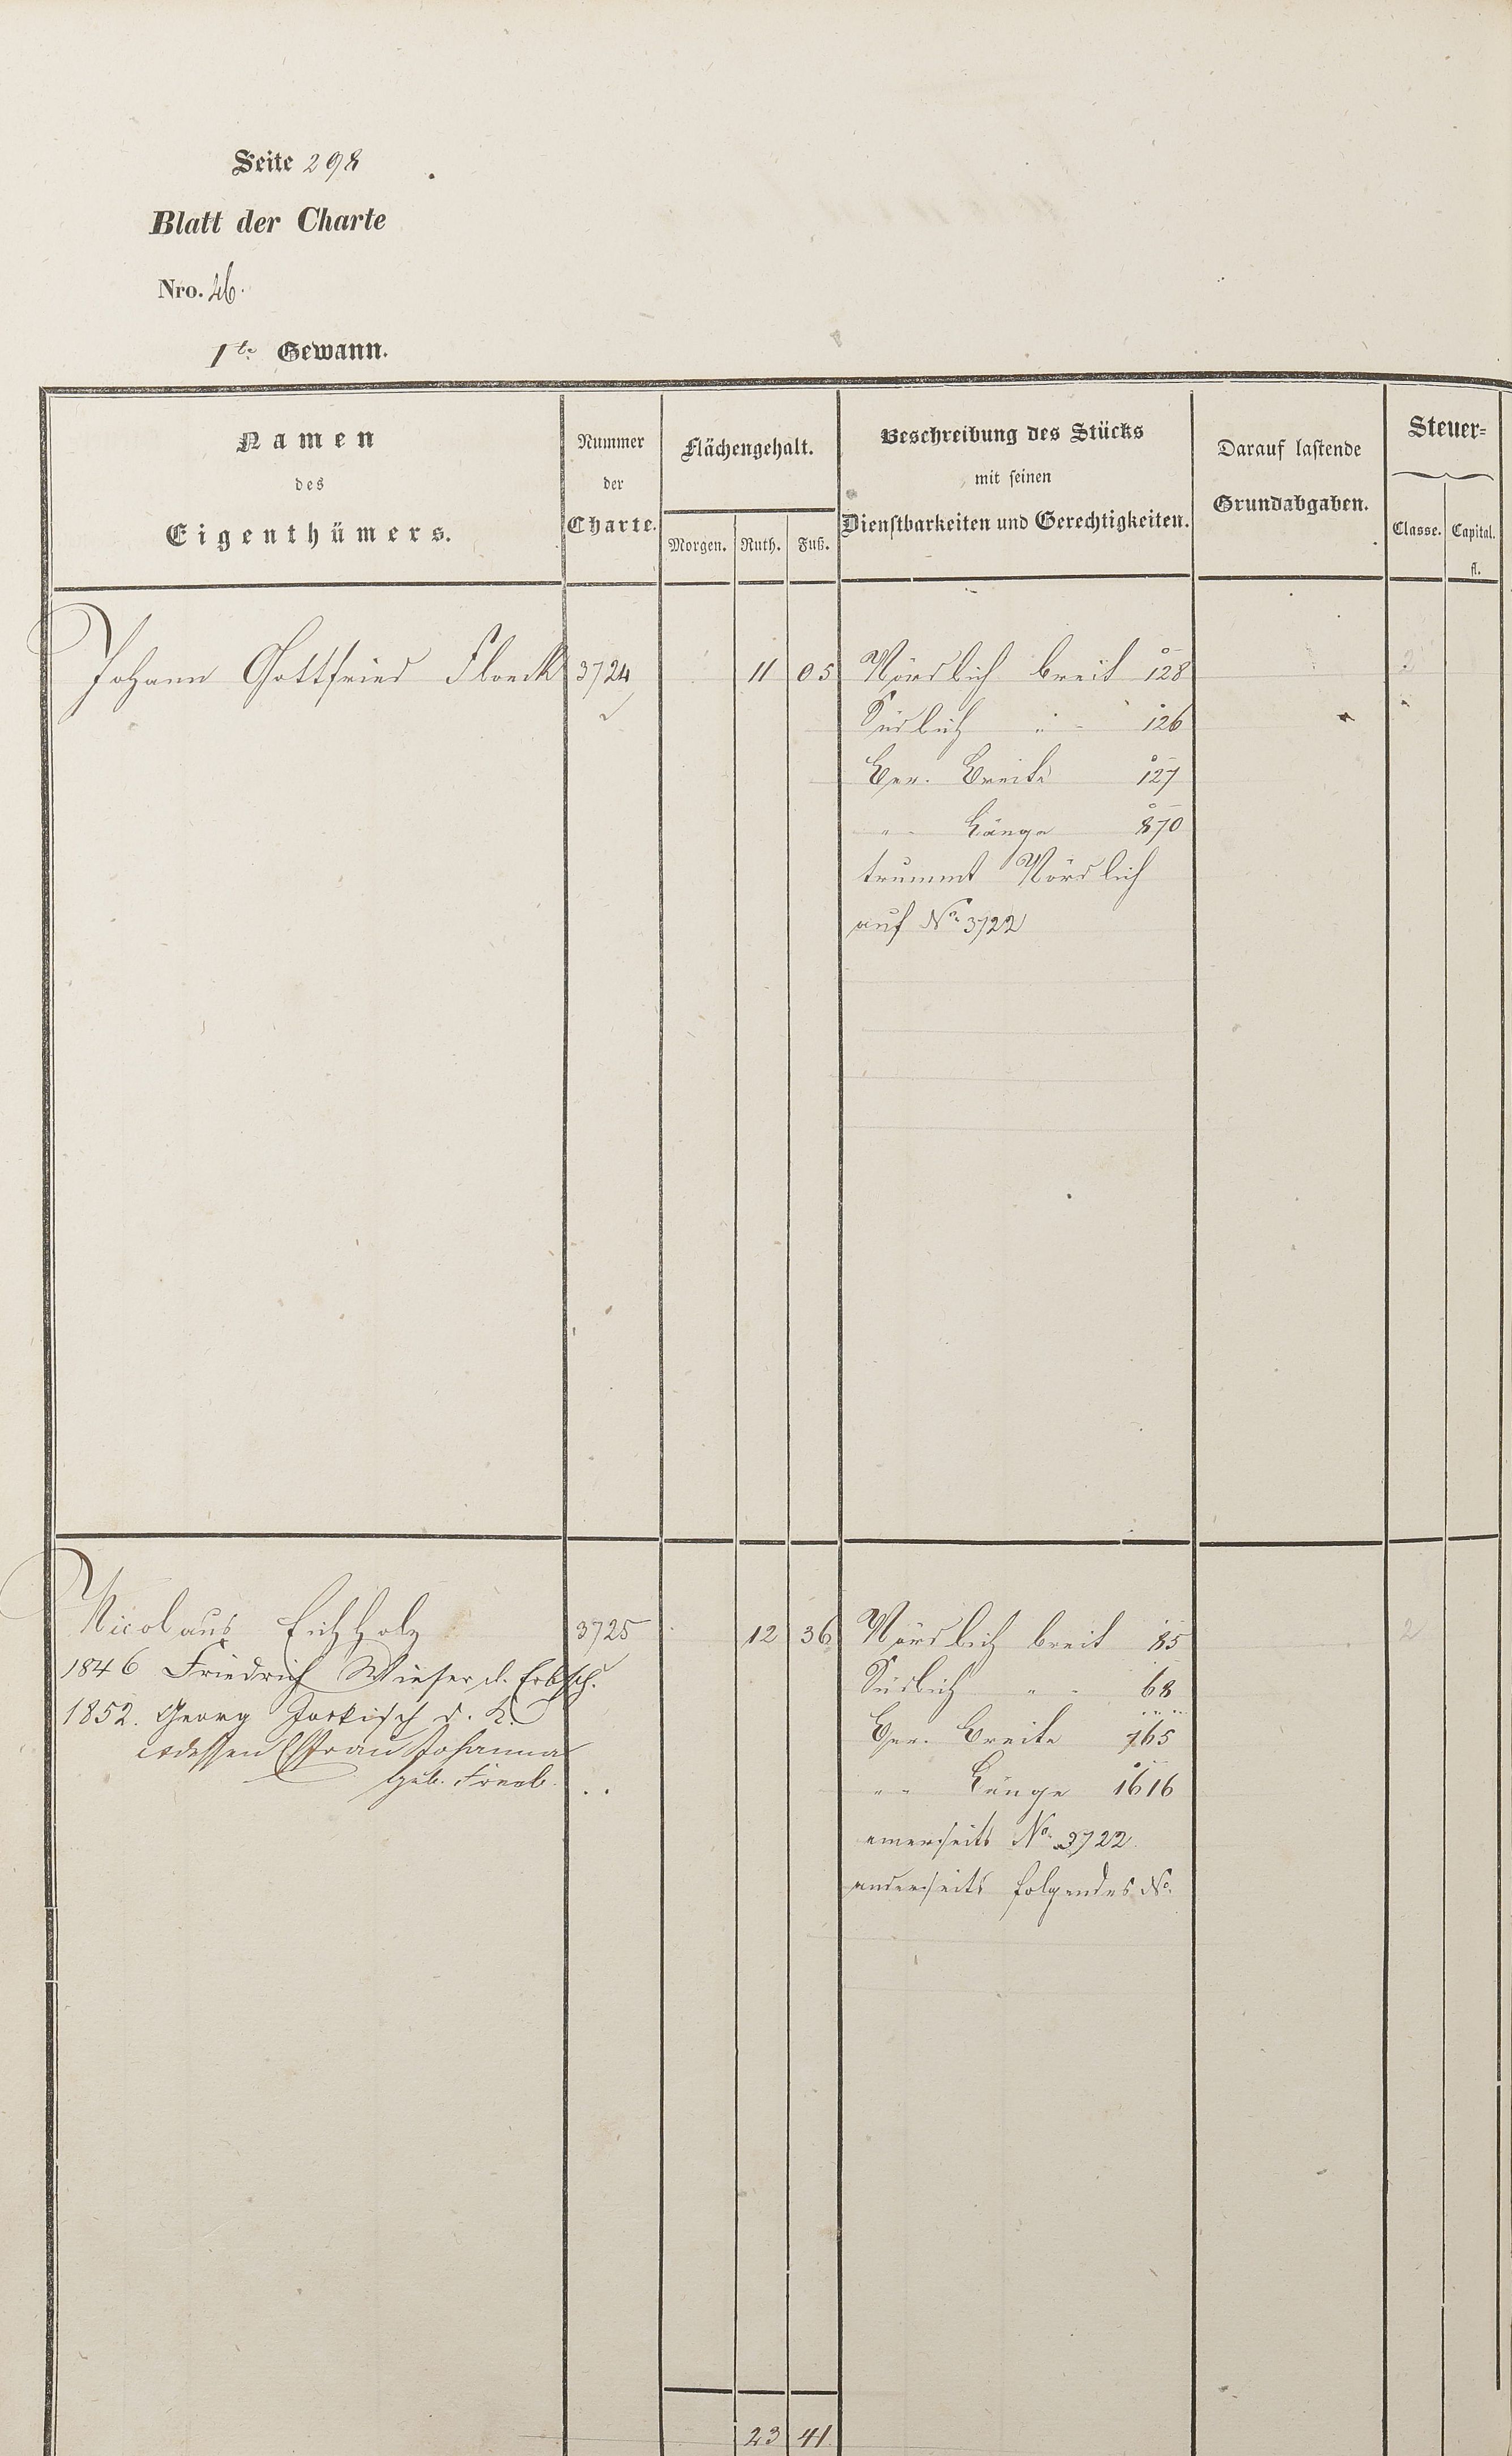 Seite 298
Blatt der Charte
Nro. 46.
1te Gewann.
Namen
des
Eigenthümers.
Nummer
der
Charte.
Flächengehalt.
Morgen. Ruth. Fuß.
Beschreibung des Stücks
mit seinen
Dienstbarkeiten und Gerechtigkeiten.
Darauf lastende
Grundabgaben.
Steuer-
Classe. Capital.
fl.
Johann Gottfried Floeck 3724 11 05 Nördlich breit 128 2
Südlich " - 126
Ger. Breite 127
" - Länge 870
trummt Nördlich
auf No. 3722
Nicolaus Eichholz 3725 12 36 Nördlich breit 85 2
1846 Friedrich Wieser d. Erbsch.
Südlich " - 68
1852. Georg d. K.
Ger. Breite 765
dessen Ehefrau Johanna
geb.
" - Länge 1616
einerseits No. 3722.
anderseits folgendes No.
23 41.